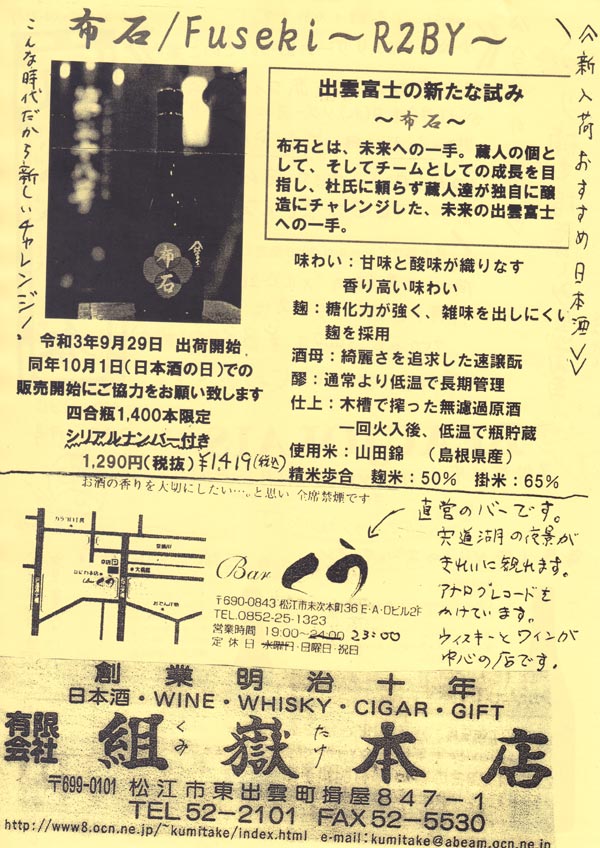 布石/Fuseki～R2BY～
≪新入荷おすすめ日本酒≫
こんな時代だから新しいチャレンジ!
布石
出雲富士の新たな試み
～布石～
布石とは、未来への一手。蔵人の個と
して、そしてチームとしての成長を目
指し、杜氏に頼らず蔵人達が独自に醸
造にチャレンジした、未来の出雲富士
への一手。
味わい：甘味と酸味が織りなす
香り高い味わい
麹：糖化力が強く、雑味を出しにくい
麹を採用
酒母：綺麗さを追求した速醸酛
醪：通常より低温で長期管理
仕上：木槽で搾った無濾過原酒
一回火入後、低温で瓶貯蔵
使用米：山田錦　（島根県産）
精米歩合　麹米：50%　掛米：65%
令和3年9月29日　出荷開始
同年10月1日（日本酒の日）での
販売開始にご協力をお願い致します
四合瓶1,400本限定
シリアルナンバー付き
1,290円（税抜）¥1419(税込)
お酒の香りを大切にしたい…。と思い 全席禁煙です
Bar くう
〒690-0843 松江市末次本町36 E・A・Dビル2F
TEL.0852-25-1323
営業時間 19:00～24:00 23:00
定休日 水曜日・日曜日・祝日
直営のバーです。
宍道湖の夜景が
きれいに観れます。
アナログレコードも
かけています。
ウィスキーとワインが
中心の店です。
創業明治十年
日本酒・WINE・WHISKY・CIGAR・GIFT
有限会社 組嶽本店
くみ たけ
〒699-0101 松江市東出雲町揖屋847-1
TEL 52-2101 FAX 52-5530
http://www8.ocn.ne.jp/~kumitake/index.html e-mail:kumitake@abeam.ocn.ne.jp